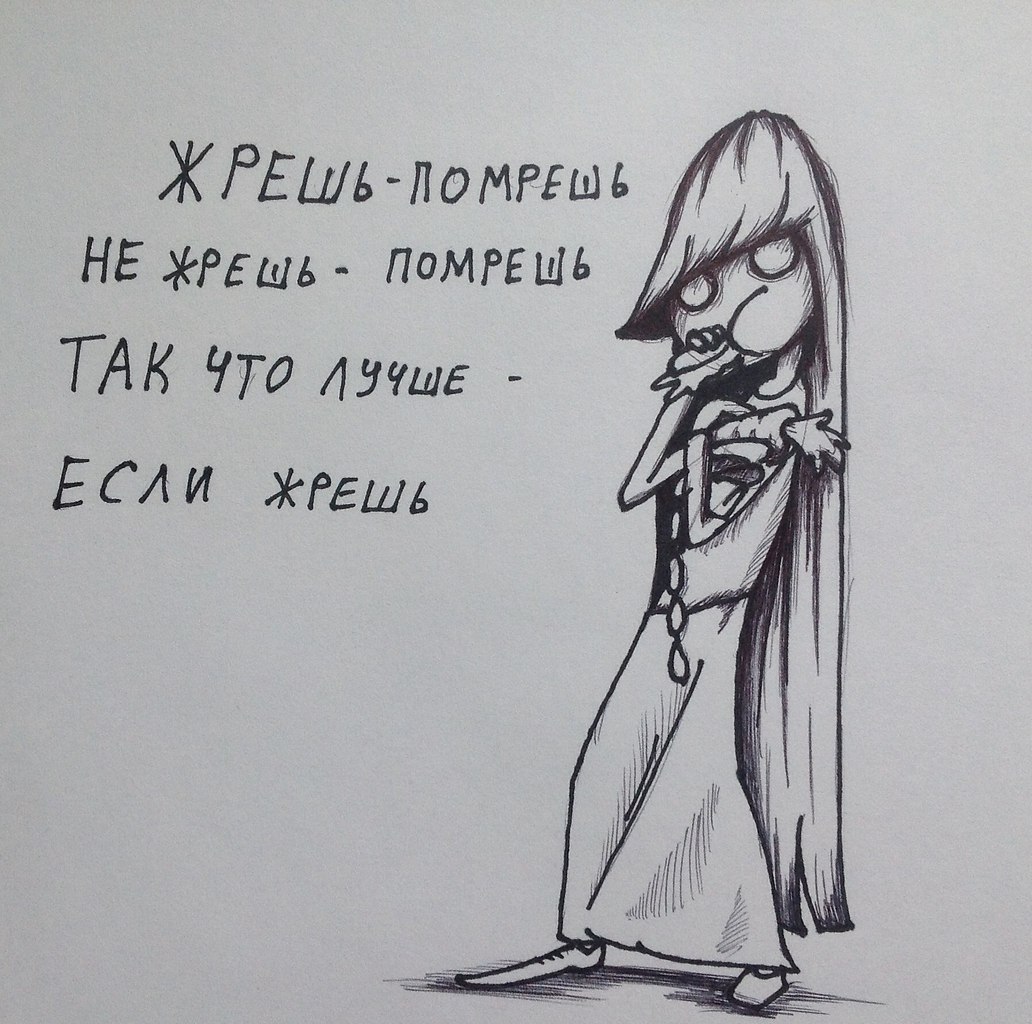 ЖРЕШЬ-ПОМРЕШЬ
НЕ ЖРЕШЬ - ПОМРЕШЬ
ТАК ЧТО ЛУЧШЕ -
ЕСЛИ ЖРЕШЬ